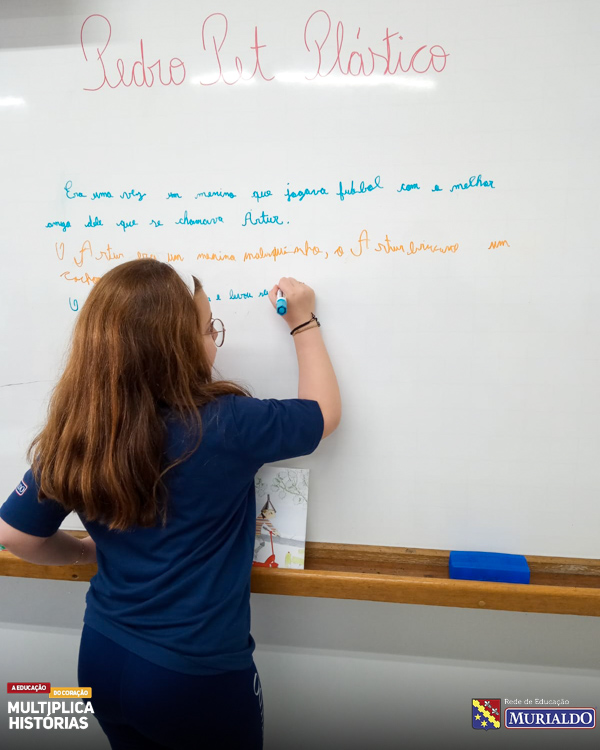 Pedro Pet Plástico
Era uma vez um menino que jogava futbol com o melhor
amgo dele que se chamava Artur.
O Artur era um menino maluquinho, o Artur um
O e levou
A EDUCAÇÃO
DO CORAÇÃO
MULTIPLICA
HISTÓRIAS
Rede de Educação
MURIALDO